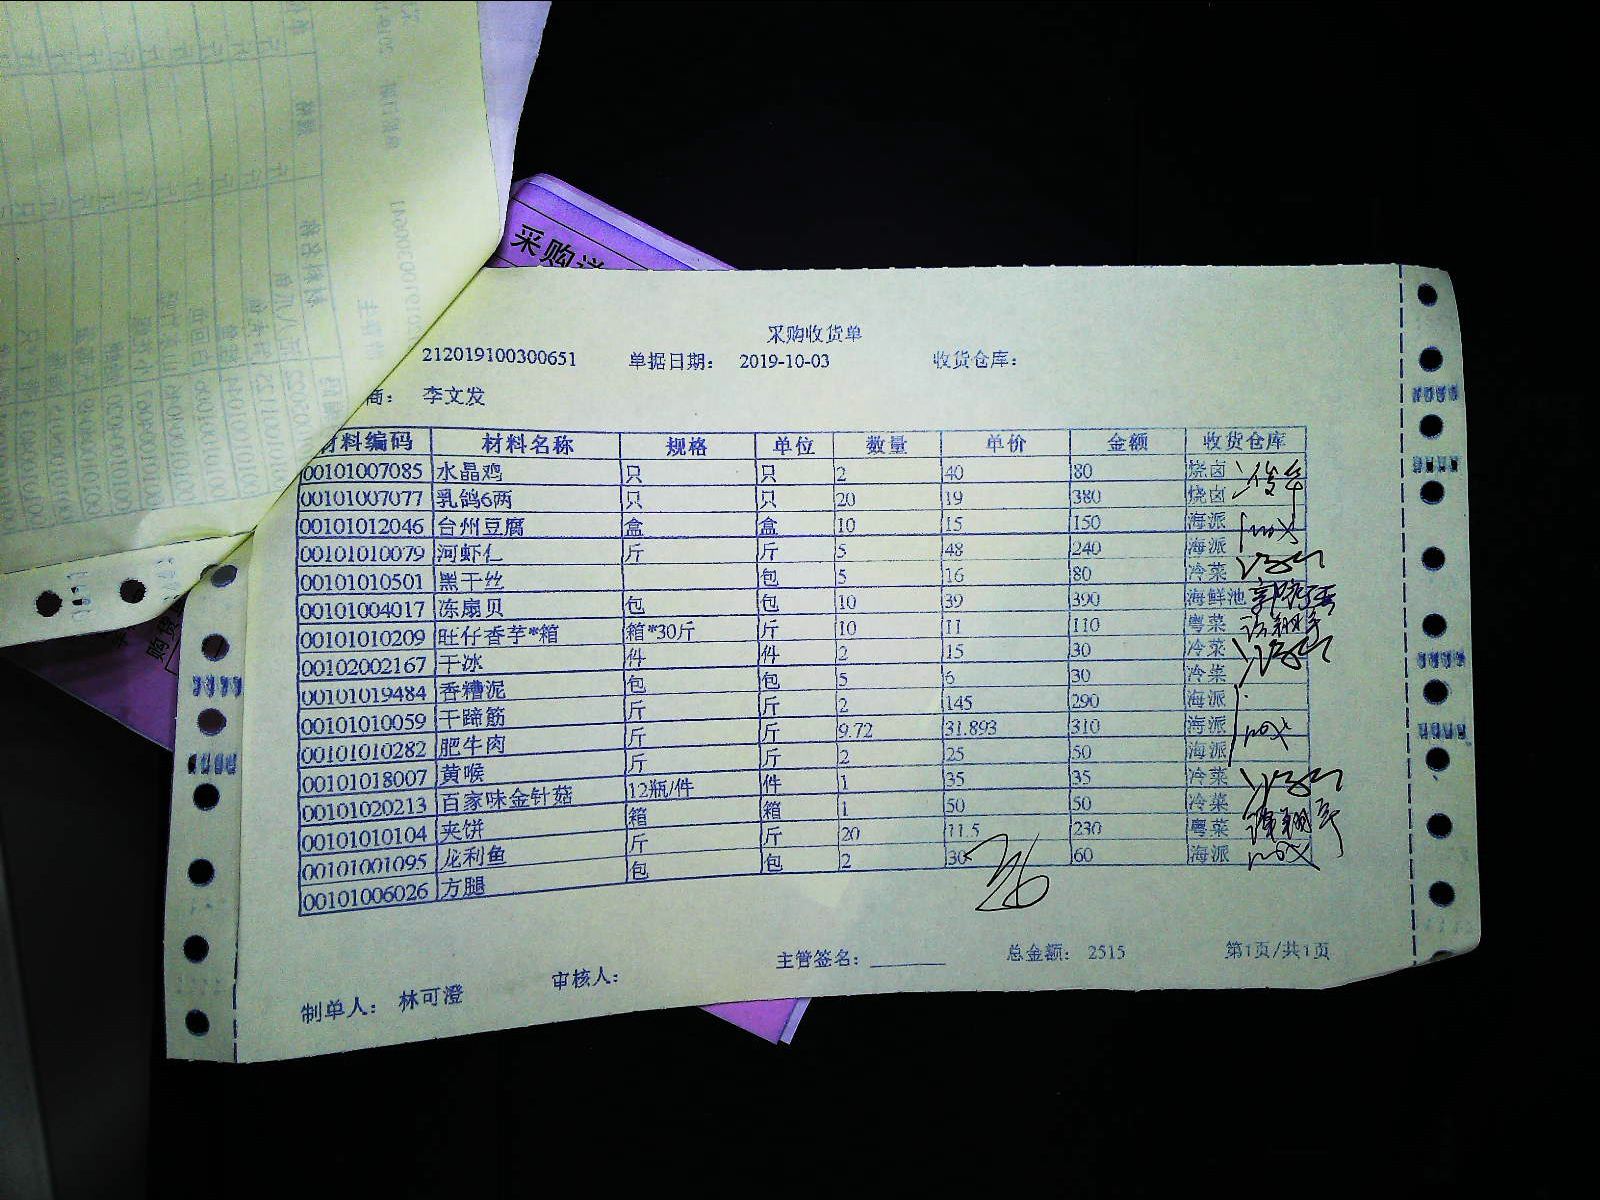 采购
采购收货单
212019100300651 单据日期： 2019-10-03 收货仓库：
商： 李文发
材料编码 材料名称 规格 单位 数量 单价 金额 收货仓库
00101007085 水晶鸡 只 只 2 40 80 烧卤
00101007077 乳鸽6两 只 只 20 19 380 烧卤
00101012046 台州豆腐 盒 盒 10 15 150 海派
00101010079 河虾仁 斤 斤 5 48 240 海派
00101010501 黑干丝 包 5 16 80 冷菜
00101004017 冻扇贝 包 包 10 39 390 海鲜池
00101010209 旺仔香芋*箱 箱*30斤 斤 10 11 110 粤菜
00102002167 干冰 件 件 2 15 30 冷菜
00101019484 香糟泥 包 包 5 6 30 冷菜
00101010059 干蹄筋 斤 斤 2 145 290 海派
00101010282 肥牛肉 斤 斤 9.72 31.893 310 海派
00101018007 黄喉 斤 斤 2 25 50 海派
00101020213 百家味金针菇 12瓶/件 件 1 35 35 冷菜
00101010104 夹饼 箱 箱 1 50 50 冷菜
00101001095 龙利鱼 斤 斤 20 11.5 230 粤菜
00101006026 方腿 包 包 2 30 60 海派
制单人： 林可澄 审核人： 主管签名： 总金额： 2515 第1页/共1页